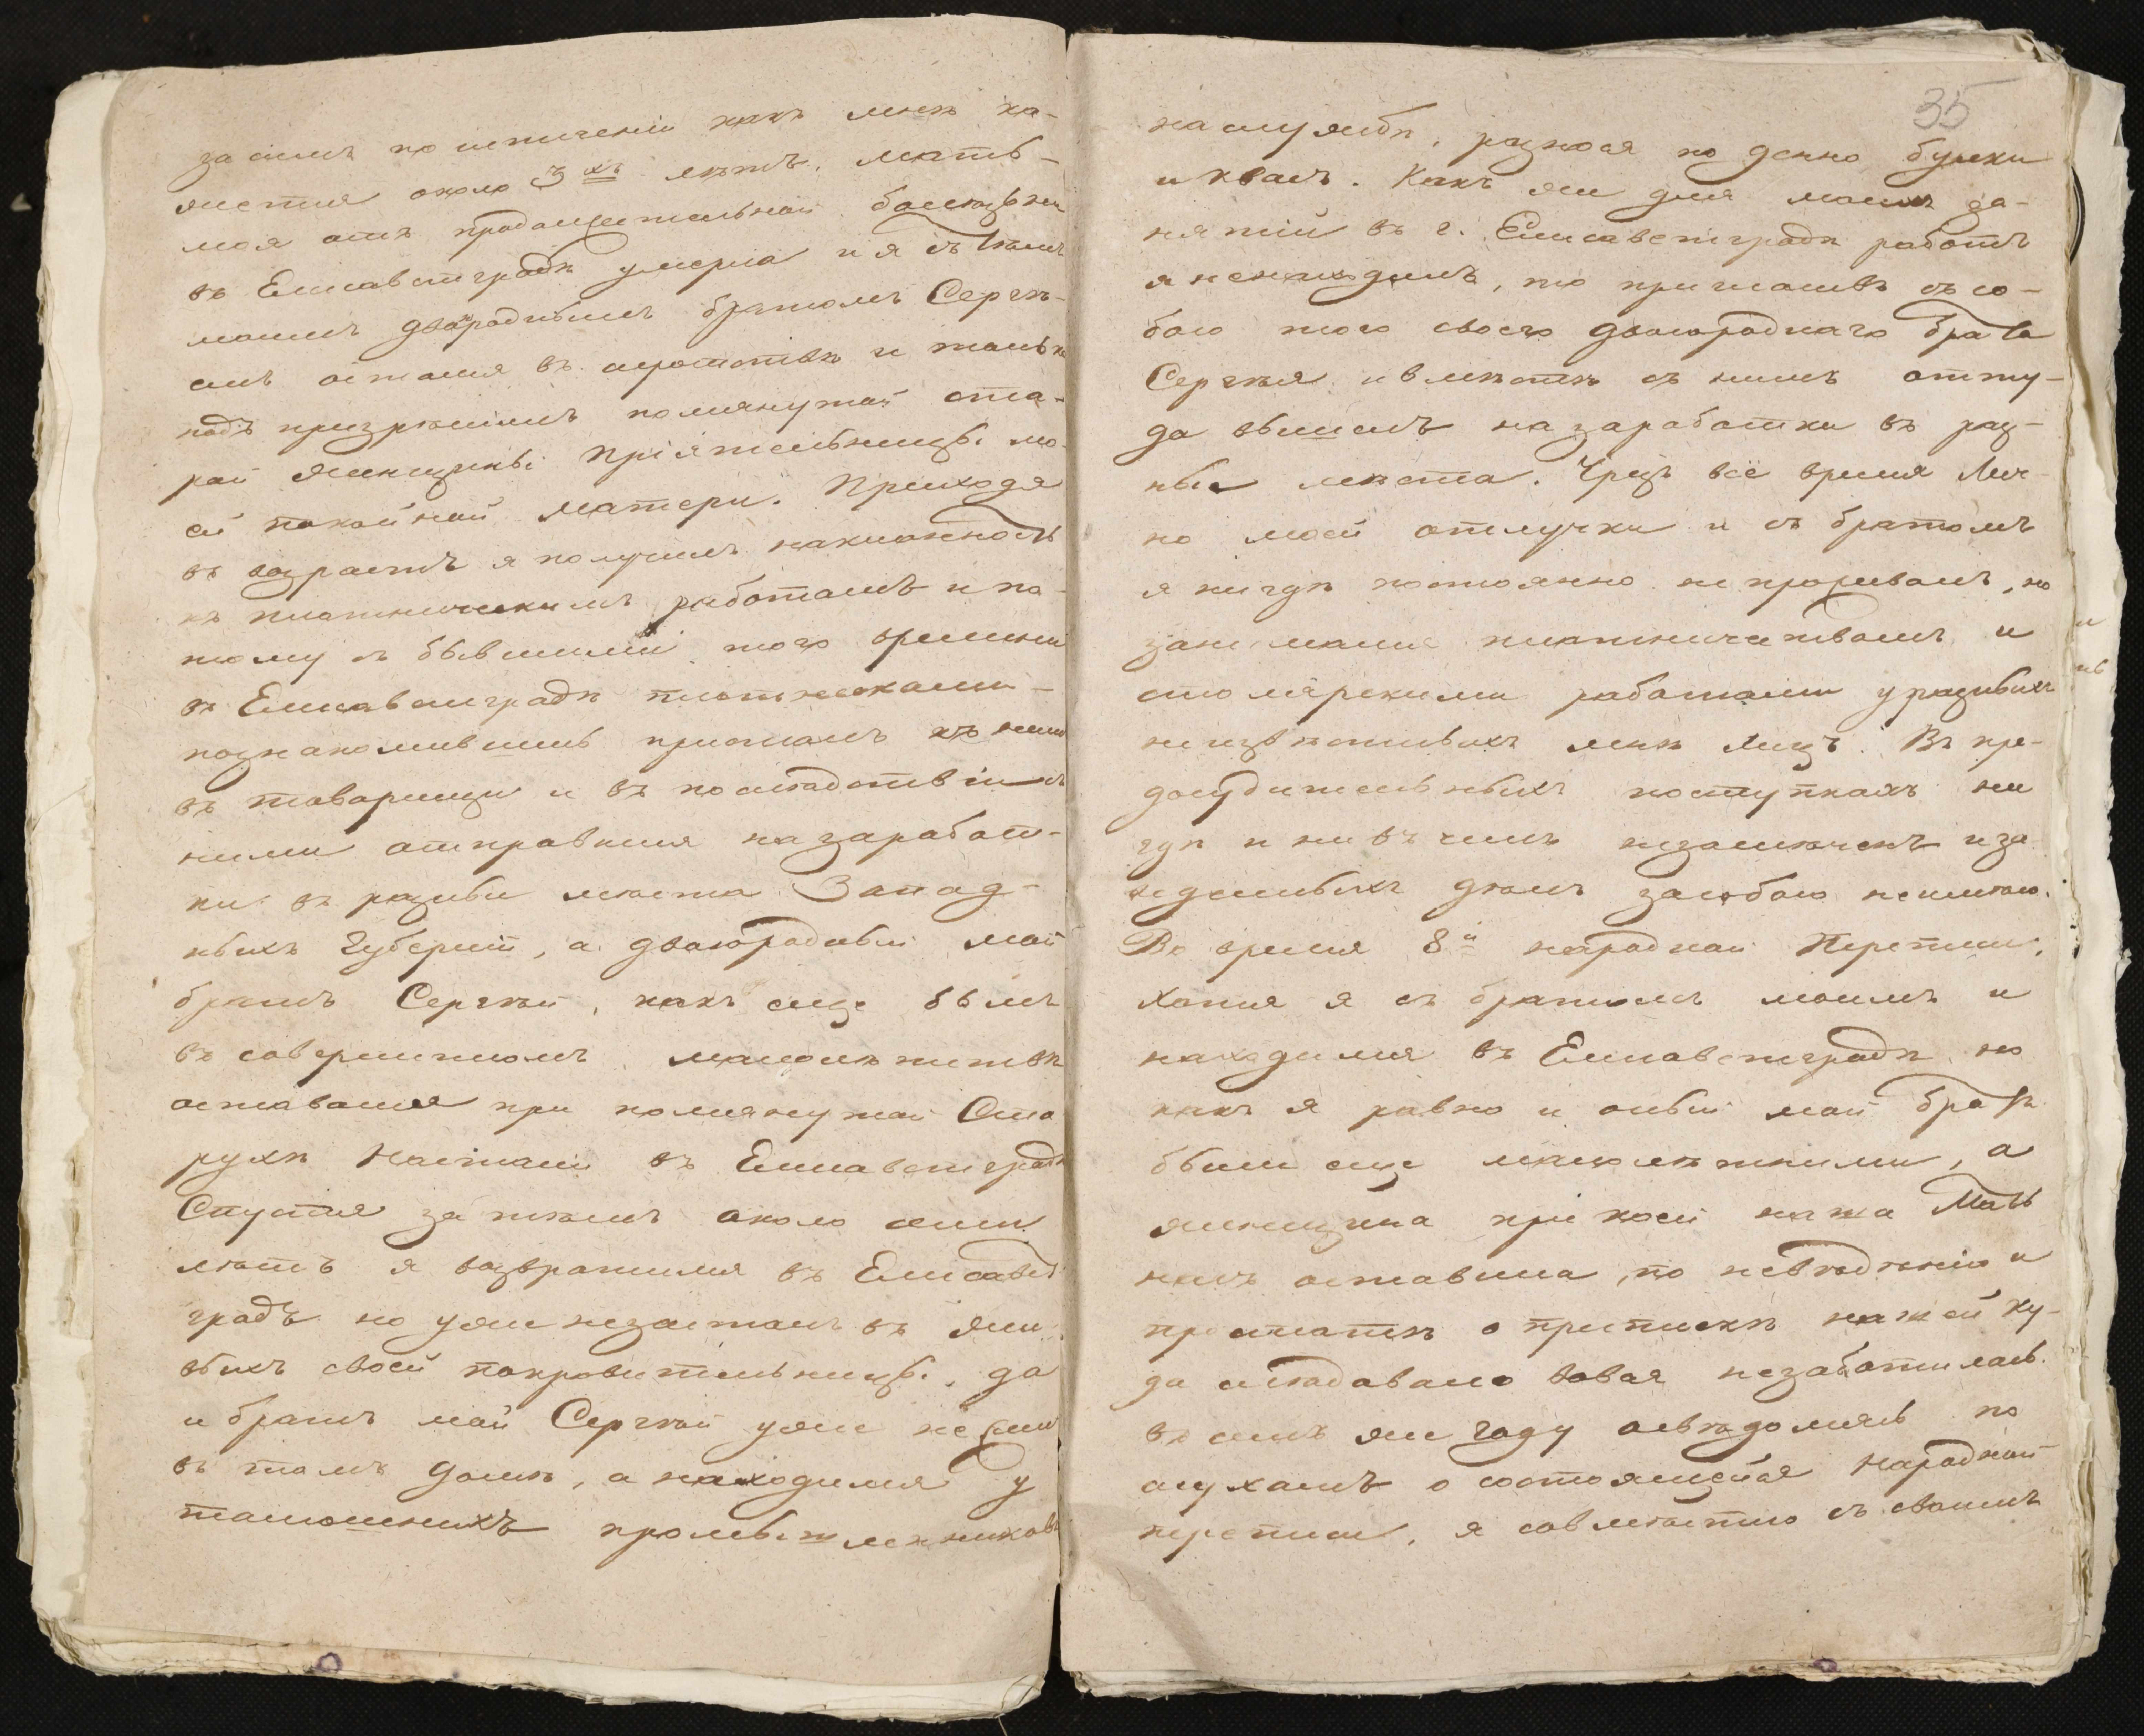 за симъ по истеченіи какъ мнѣ ка-
жется около 3хъ лѣтъ, мать
моя отъ продолжительной болѣзни
въ Елисаветградѣ умерла и я съ тѣмъ
моимъ двоюроднымъ братомъ Сергѣ-
емъ остался въ сиротствѣ и только
подъ призрѣніемъ помянутой ста-
рой женщины пріятельницы мо-
ей покойной матери. Приходя
въ возрастъ я получилъ наклонность
къ плотническимъ работамъ и по-
тому съ бывшими того времени
въ Елисаветградѣ плотниками
познакомившись присталъ къ нимъ
въ товарищи и въ послѣдствіи съ
ними отправился на заработ-
ки въ разныи мѣста Запад-
ныхъ Губерній, а двоюродный мой
братъ Сергѣй, какъ еще былъ
въ совершенномъ малолѣтствѣ
оставался при помянутой Ста
рухѣ Настасіи въ Елисаветградѣ
Спустя за тѣмъ около семи
лѣтъ я возвратился въ Елисавет
градъ но уже незасталъ въ жи-
выхъ своей покровительницы, да
и братъ мой Сергѣй уже не жилъ
въ томъ домѣ, а находился у
тамошнихъ промышленниковъ
35
на службѣ, разнося по денно булки
и квасъ. Какъ же для моихъ за-
нятій въ г. Елисаветградѣ работъ
я ненаходилъ, то пригласивъ съ со-
бою того своего двоюроднаго брата
Сергѣя и вмѣстѣ съ нимъ отту-
да вышелъ на заработки въ раз-
ныя мѣста. Чрезъ всё время лич-
но моей отлучки и съ братомъ
я нигдѣ постоянно не проживалъ, но
занимался плотничествомъ и
столярскими работами у разныхъ
неизвѣстныхъ мнѣ лицъ. Въ пре-
досудительныхъ поступкахъ ни
гдѣ и ни въ чемъ незамѣченъ и за
хедшныхъ дѣлъ засобою неимѣю.
Во время 8й народной Переписи,
хотя я съ братомъ моимъ и
находился въ Елисаветградѣ но
какъ я равно и оный мой братъ
были еще малолѣтними, а
женщина при коей наша Мать
насъ оставила, по невѣденію и
простотѣ о припискѣ нашей ку-
да слѣдовало вовся незаботилась.
въ семъ же году освѣдомясь по
слухамъ о состоящейся Народной
переписи, я совмѣстно съ своимъ